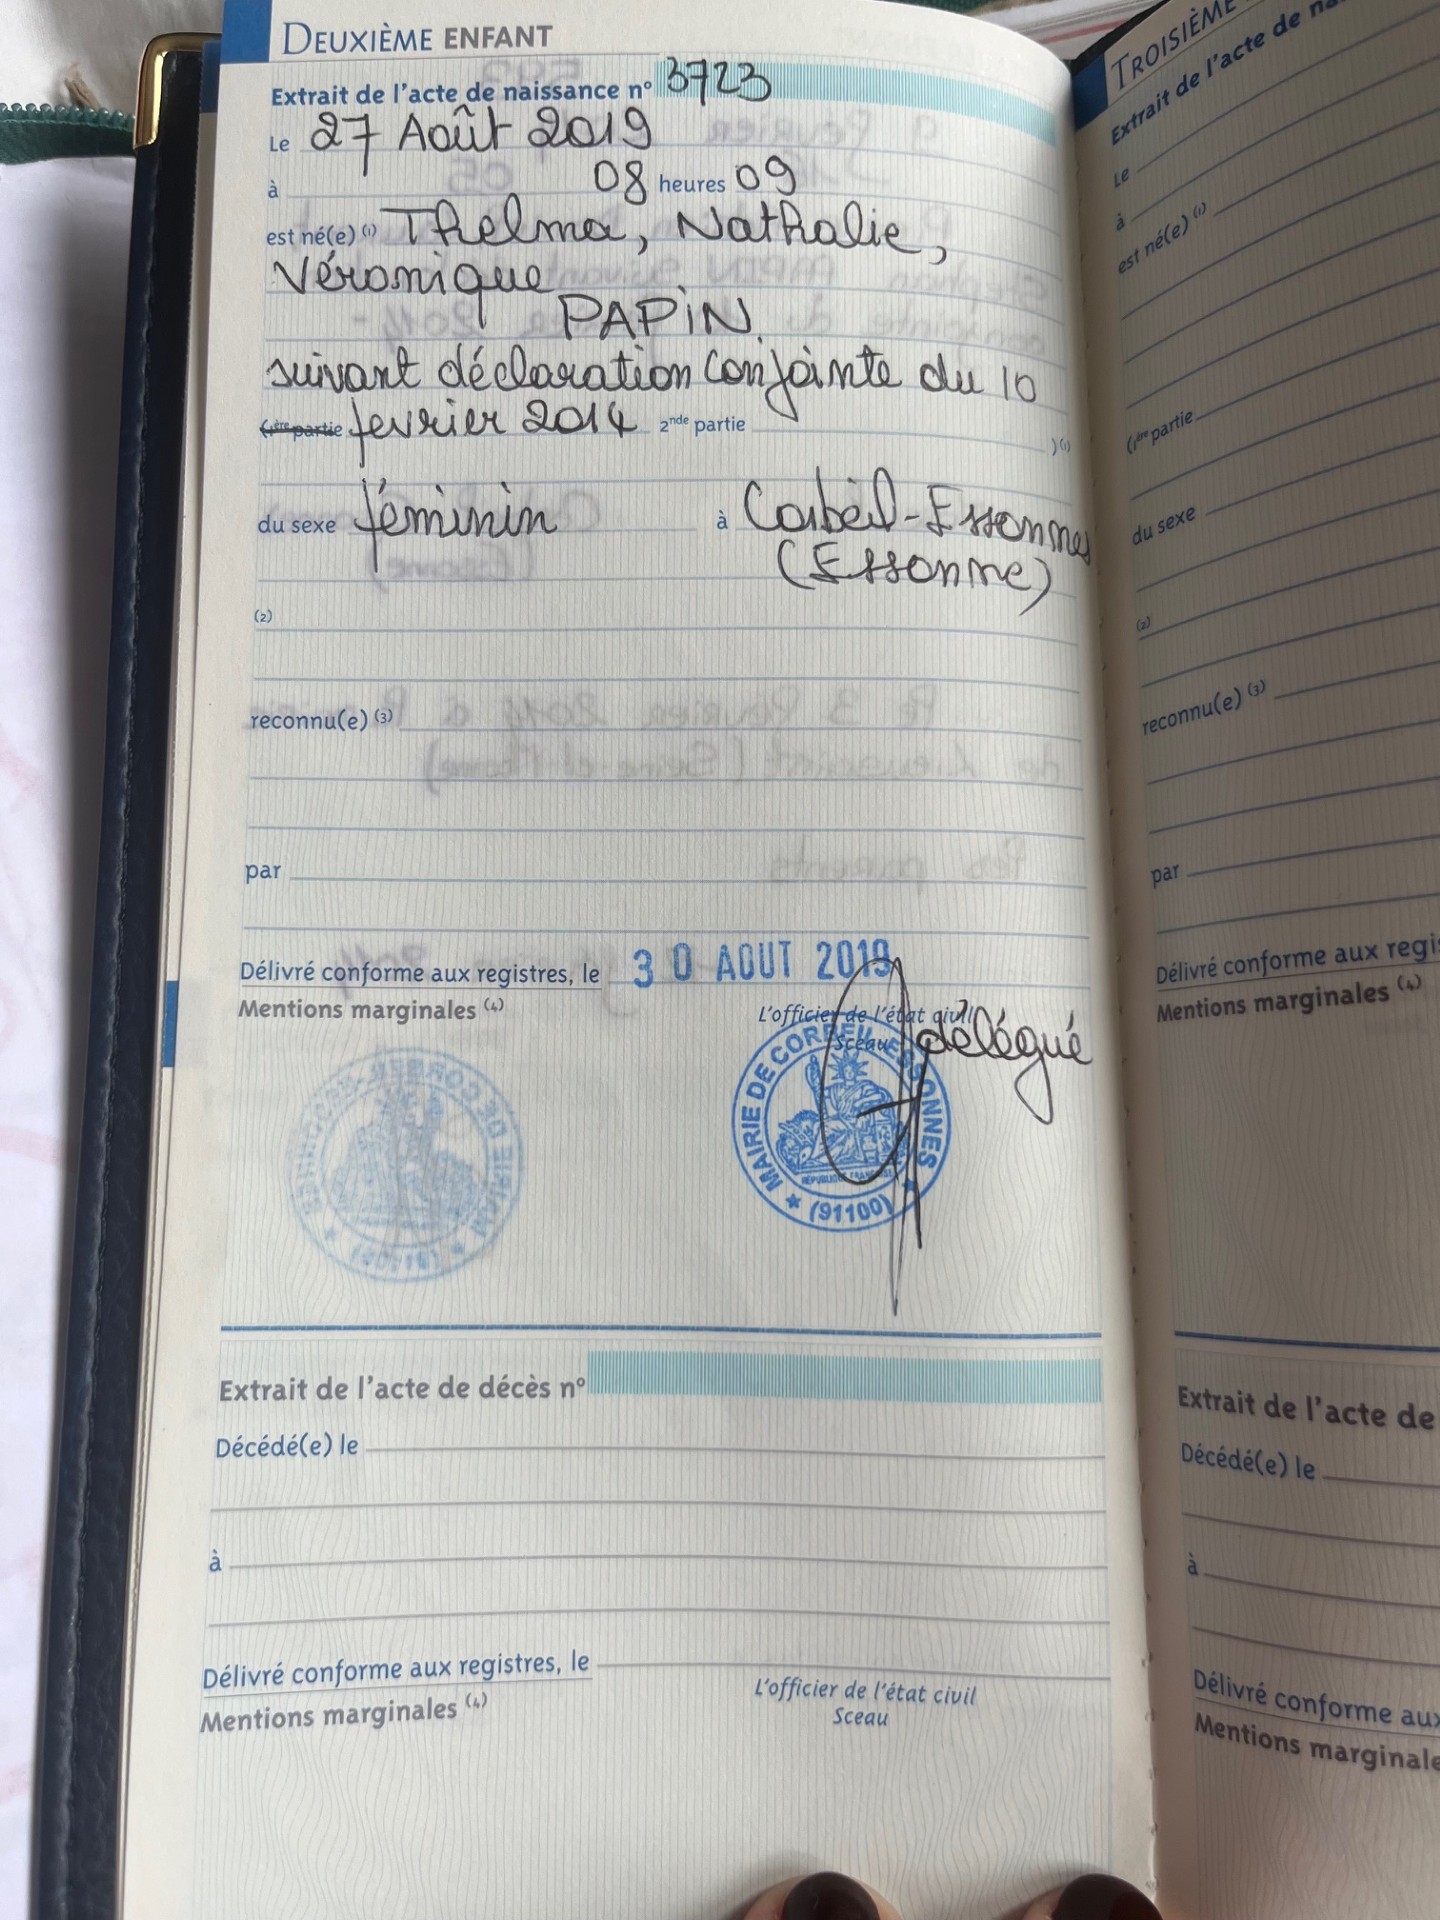 DEUXIÈME ENFANT
Extrait de l'acte de naissance n° 3723
Le 27 Août 2019
à 08 heures 09
est né(e) (1) Thelma, Nathalie,
Véronique
PAPIN
suivant déclaration conjointe du 10
(1ère partie février 2014 2nde partie )(1)
du sexe féminin à Corbeil-Essonnes
(Essonne)
(2)
reconnu(e) (3)
par
Délivré conforme aux registres, le 30 AOUT 2019
Mentions marginales (4)
L'officier de l'état civil
Sceau
délégué
MAIRIE DE CORBEIL-ESSONNES
RÉPUBLIQUE FRANÇAISE
(91100)
Extrait de l'acte de décès n°
Décédé(e) le
à
Délivré conforme aux registres, le
Mentions marginales (4)
L'officier de l'état civil
Sceau
TROISIÈME
Extrait de l'acte de na
Le
à
est né(e) (1)
(1ère partie
du sexe
(2)
reconnu(e) (3)
par
Délivré conforme aux regis
Mentions marginales (4)
Extrait de l'acte de
Décédé(e) le
à
Délivré conforme aux
Mentions marginale